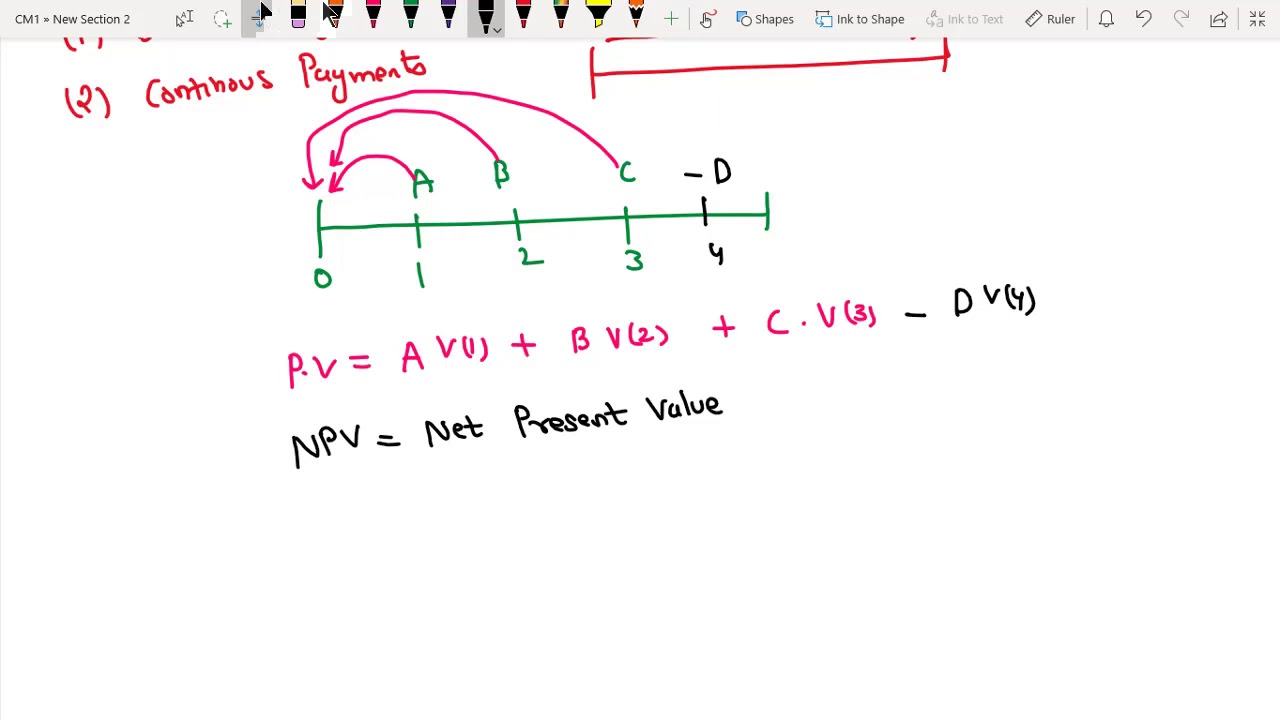 CM1 » New Section 2
Shapes
Ink to Shape
Ink to Text
Ruler
(2) Continous Payments
A B C - D
0 1 2 3 4
P.V = A V(1) + B V(2) + C . V(3) - D V(4)
NPV = Net Present Value